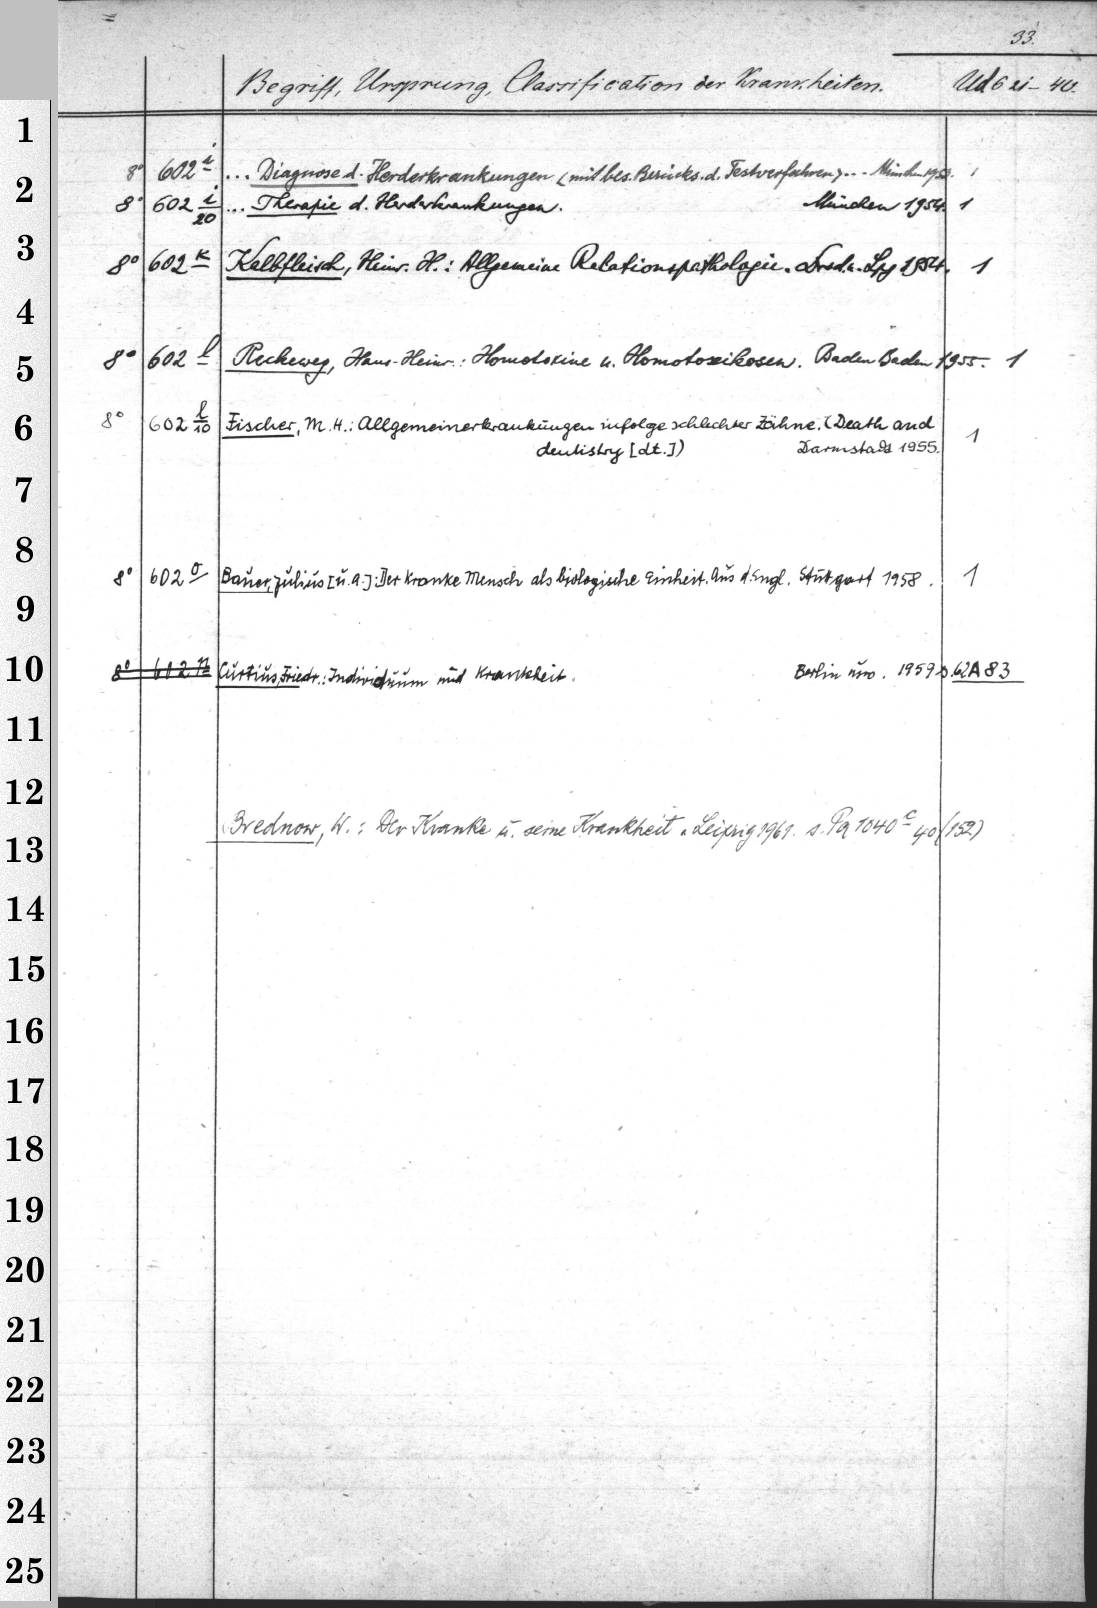 33.
Begriff, Ursprung, Classification der Krankheiten. Ud 6 21-40.
1
8° 602 i ... Diagnose d. Herderkrankungen (mit bes. Berücks. d. Testverfahren) ... München 1953. 1
2
8° 602 i/20 ... Therapie d. Herderkrankungen. München 1954. 1
3
8° 602 k Kalbfleisch, Heinr. H.: Allgemeine Relationspathologie. Dresd. u. Lpz 1954. 1
4
5
8° 602 l Reckeweg, Hans-Heinr.: Homotoxine u. Homotoxikosen. Baden Baden 1955. 1
6
8° 602 l/10 Fischer, M.H.: Allgemeinerkrankungen infolge schlechter Zähne. (Death and
dentistry [dt.]) Darmstadt 1955. 1
7
8
8° 602 o Bauer, Julius [u.a.]: Der kranke Mensch als biologische Einheit. Aus d. Engl. Stuttgart 1958. 1
9
10
8° 602 n Curtius, Friedr.: Individuum und Krankheit. Berlin usw. 1959 s. 62A83
11
12
Brednow, W.: Der Kranke u. seine Krankheit. Leipzig 1961. s. Pa 1040 c 40 (152)
13
14
15
16
17
18
19
20
21
22
23
24
25